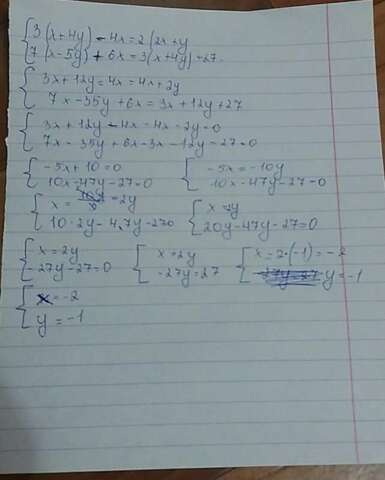 3(x+4y) - 4x = 2(2x+y
7(x-5y) + 6x = 3(x+4y)+27.
3x+12y-4x=4x+2y
7x-35y+6x=3x+12y+27
3x+12y-4x-4x-2y=0
7x-35y+6x-3x-12y-27=0
-5x+10=0 -5x=-10y
10x-47y-27=0 10x-47y-27=0
x= =2y x=2y
10·2y-47y-270 20y-47y-27=0
x=2y x=2y x=2·(-1)=-2
-27y-27=0 -27y=27 y=-1
x=-2
y=-1